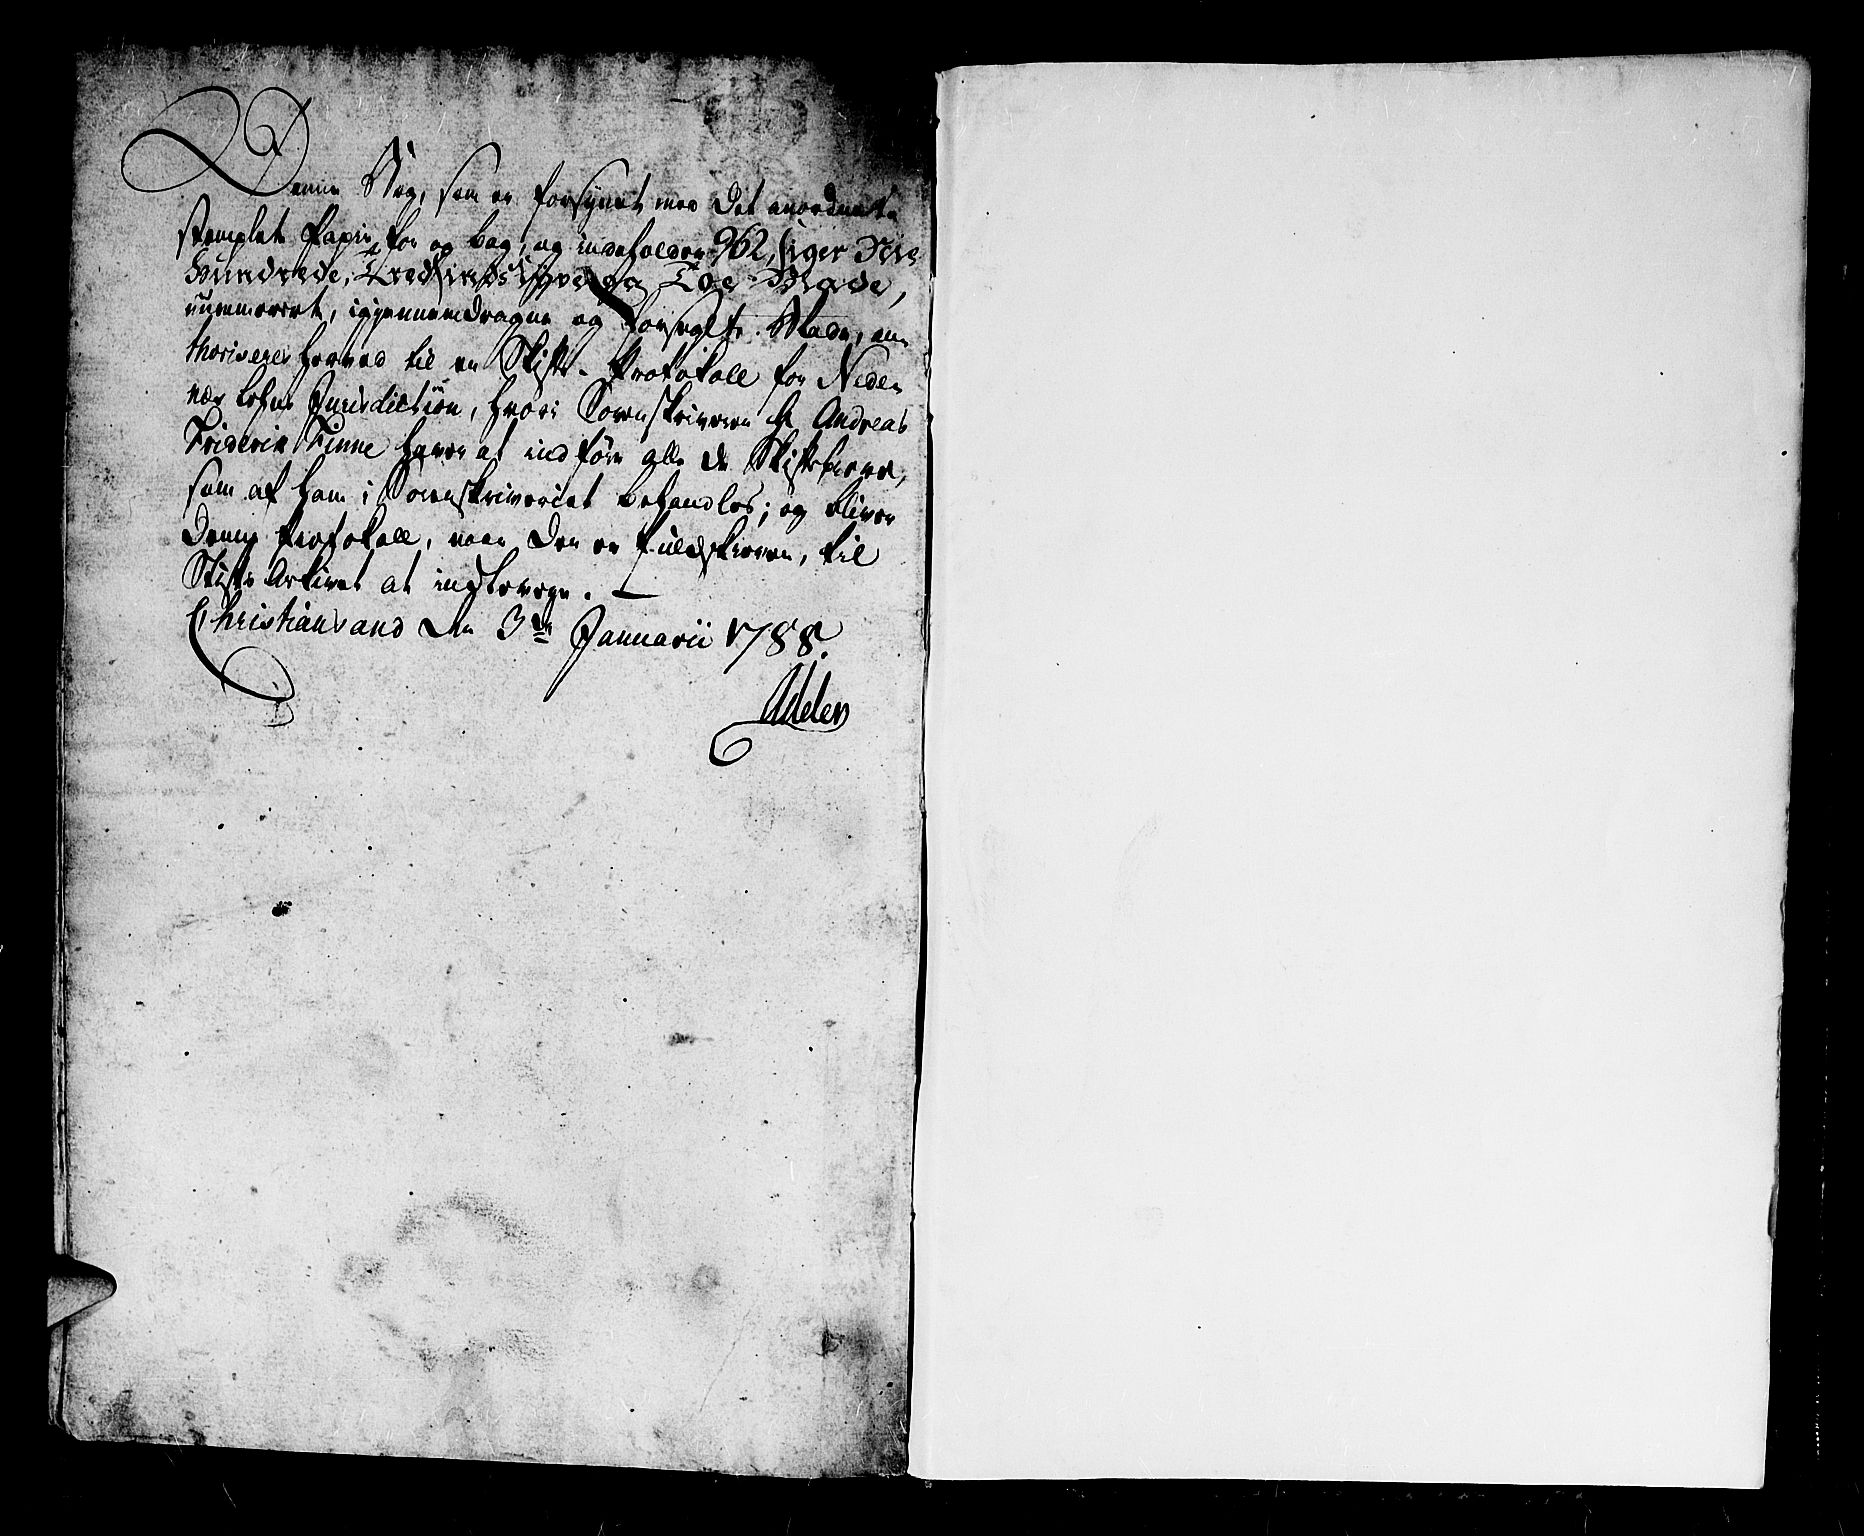 Denne Bog, som er forsynet med det anordnede
stemplet Papir for og bag, og indeholder 962, siger Nie
Hundrede, Tredsindstyve og Toe Blade,
numereret, igjennemdragne og forseglte Blade, au-
thoriseres herved til en Skifte-Protokoll for Neden
næs Lehns Jurisdiction, hvori Sorenskriveren Hr Andreas
Friderich Finne haver at indføre alle de Skiftebreve,
som af ham i Sorenskriveriet behandles; og bliver
denne Protokoll, naar den er fuldskreven, til
Stifts Arkivet at indlevere.
Christiansand den 3de Januarii 1788.
Adeler